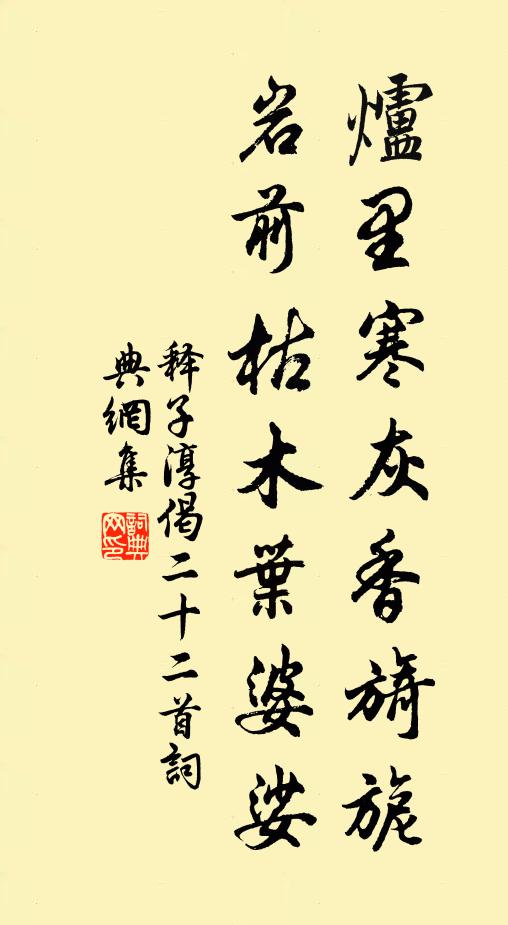 爐里寒灰香旖旎
岩前枯木葉婆娑
释子淳偈二十二首詞
典網集
詞典
网印